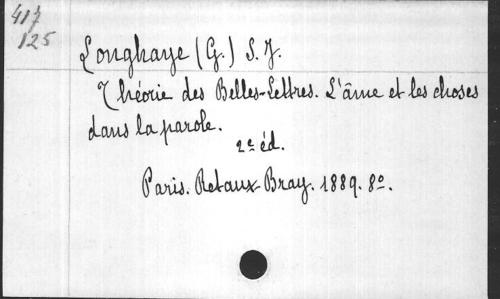 417
125
Longhaye (G.) S. J.
Théorie des Belles-Lettres. L'âme et les choses
dans la parole.
2e éd.
Paris. Retaux-Bray. 1889. 8o.